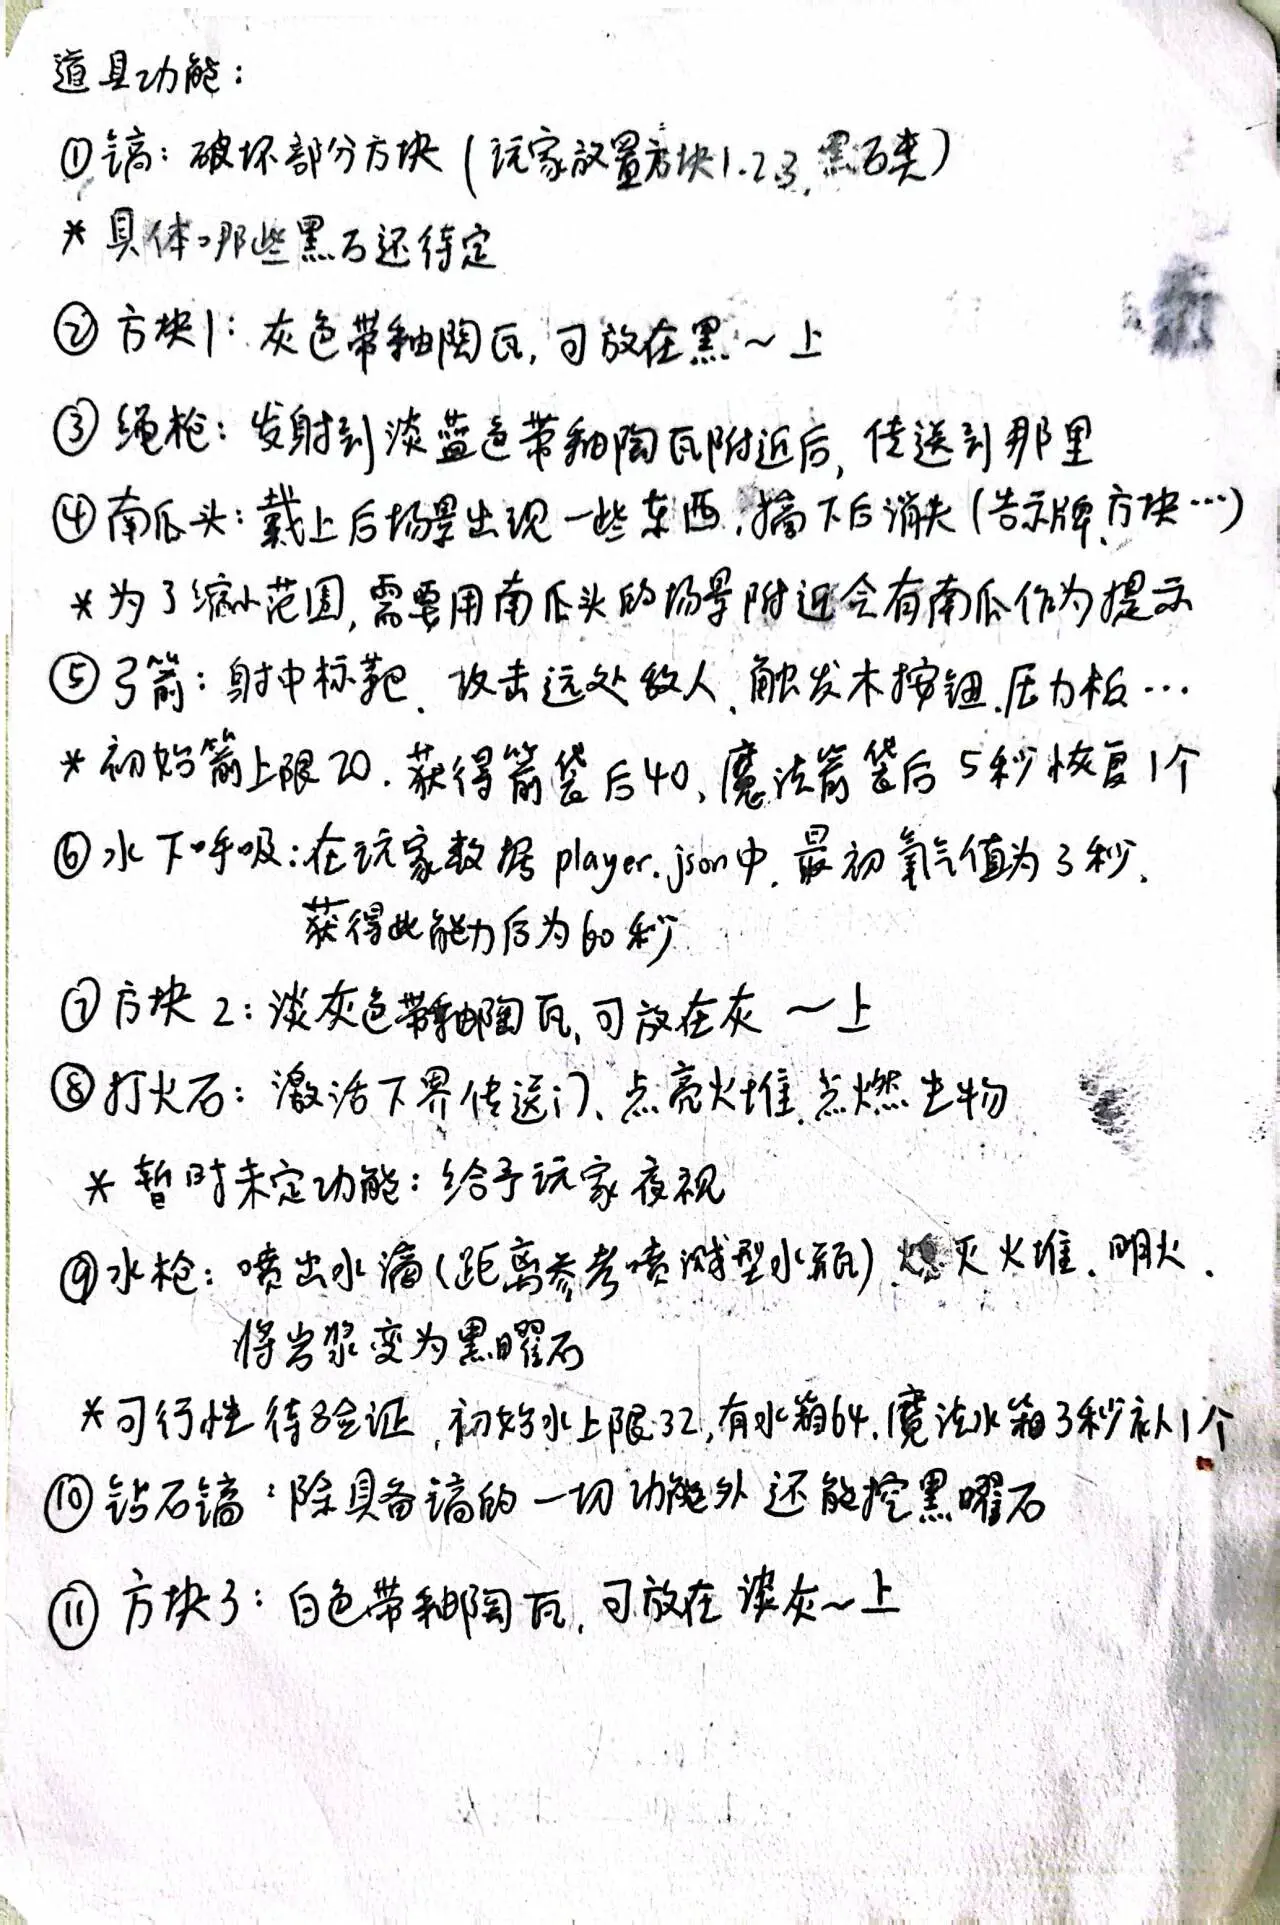 道具功能：
①镐：破坏部分方块（玩家放置方块1.2.3,黑石类）
*具体哪些黑石还待定
②方块1：灰色带釉陶瓦,可放在黑～上
③绳枪：发射到淡蓝色带釉陶瓦附近后,传送到那里
④南瓜头：戴上后场景出现一些东西,摘下后消失(告示牌、方块…)
*为了缩小范围,需要用南瓜头的场景附近会有南瓜作为提示
⑤弓箭：射中标靶、攻击远处敌人、触发木按钮、压力板…
*初始箭上限20.获得箭袋后40、魔法箭袋后5秒恢复1个
⑥水下呼吸：在玩家数据player.json中.最初氧气值为3秒、
获得此能力后为60秒
⑦方块2：淡灰色带釉陶瓦,可放在灰～上
⑧打火石：激活下界传送门、点亮火堆、点燃生物
*暂时未定功能：给予玩家夜视
⑨水枪：喷出水滴(距离参考喷溅型水瓶)、熄灭火堆、明火、
将岩浆变为黑曜石
*可行性待验证,初始水上限32,有水箱64.魔法水箱3秒补1个
⑩钻石镐：除具备镐的一切功能外还能挖黑曜石
⑪方块3：白色带釉陶瓦,可放在淡灰～上